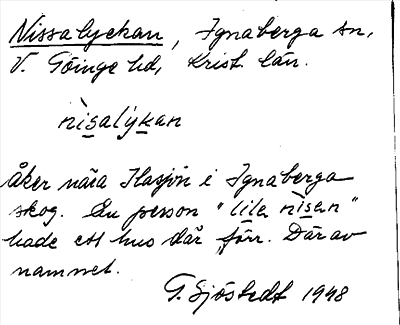 Nissalyckan, Ignaberga sn,
V. Göinge hd, Krist. län.
nìsalýkan
åker nära Ilasjön i Ignaberga
skog. En person "lila nìsen"
hade ett hus där förr. Därav
namnet.
G. Sjöstedt 1948